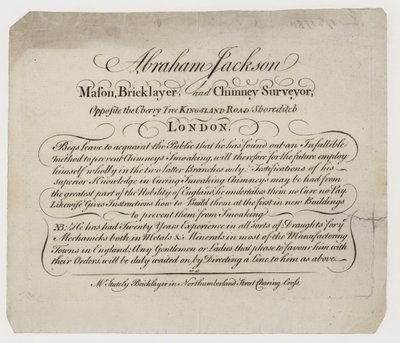 Abraham Jackson
Mason, Bricklayer, and Chimney Surveyor,
Opposite the Cherry Tree KINGSLAND ROAD Shoreditch
LONDON.
Begs leave to acquaint the Public that he has found out an Infallible
Method to prevent Chimneys Smoaking, will therefore for the future employ
himself wholly in the two latter Branches only; Testifications of his
superior Knowledge in curing Smoaking Chimneys may be had from
the greatest part of the Nobility of England, he undertakes them no Cure no Pay.
Likewise Gives Instructions how to Build them at the first in new Buildings
to prevent them from Smoaking
NB: He has had Twenty Years Experience in all sorts of Draughts for ye
Mechanicks both in Metals & Minerals in most of the Manufacturing
Towns in England; Any Gentlemen or Ladies that please to favour him with
their Orders, will be duly waited on by Directing a Line to him as above
Bricklayer in Northumberland Street Charing Cross.